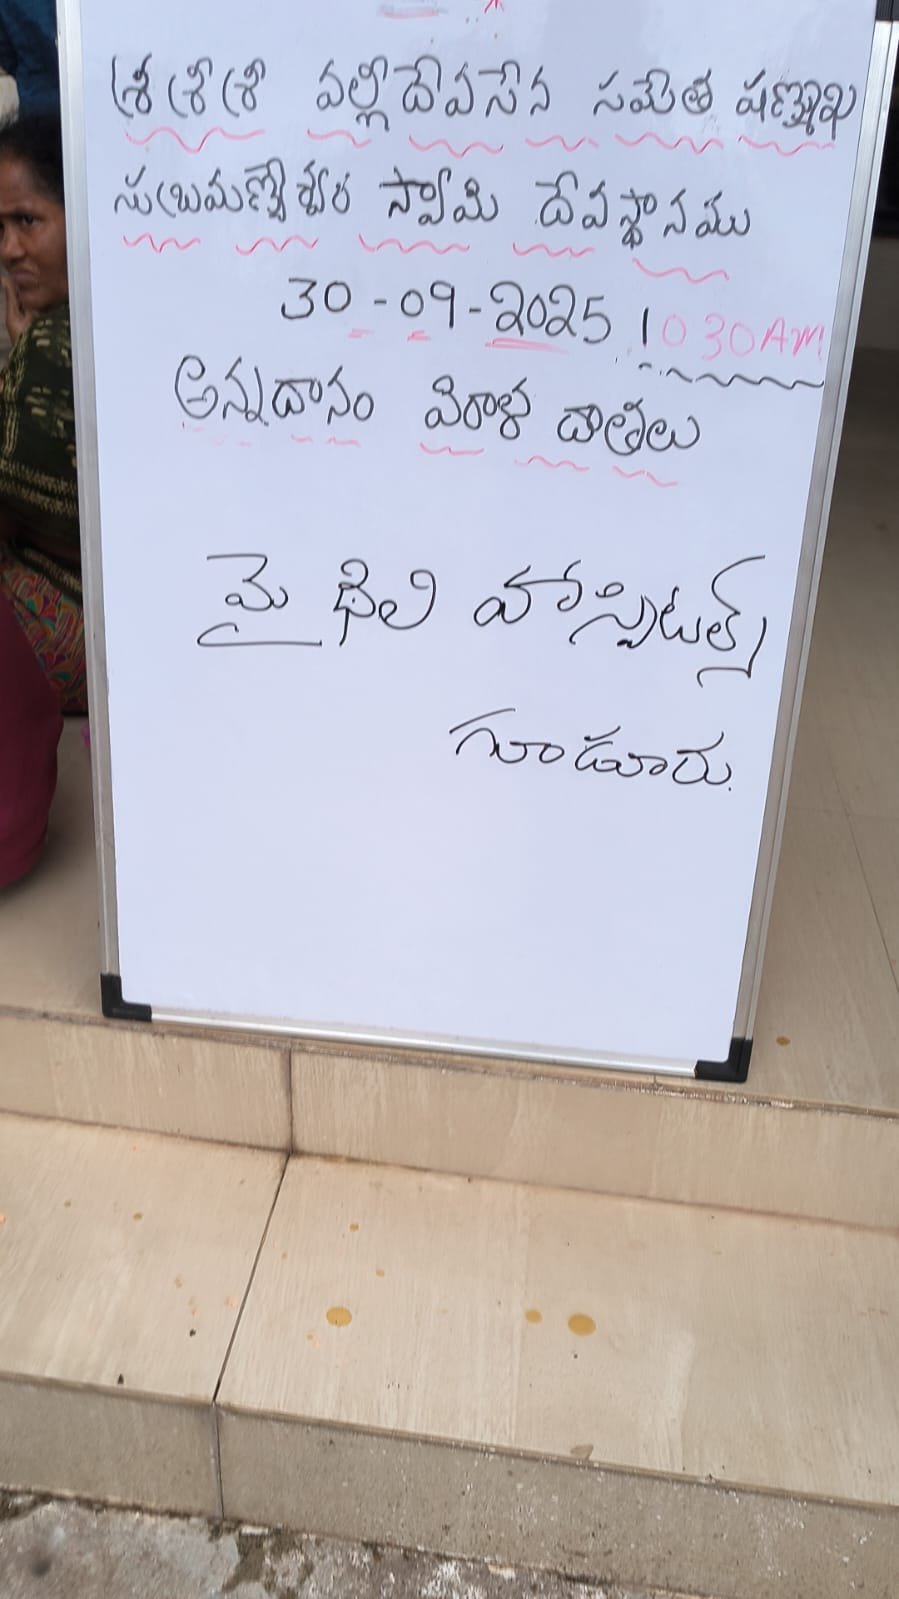 శ్రీ శ్రీ శ్రీ వల్లీదేవసేన సమేత షణ్ముఖ
సుబ్రమణ్యేశ్వర స్వామి దేవస్థానము
30-09-2025 10 30AM
అన్నదానం విరాళ దాతలు
మైథిలి హాస్పిటల్స్
గూడూరు.